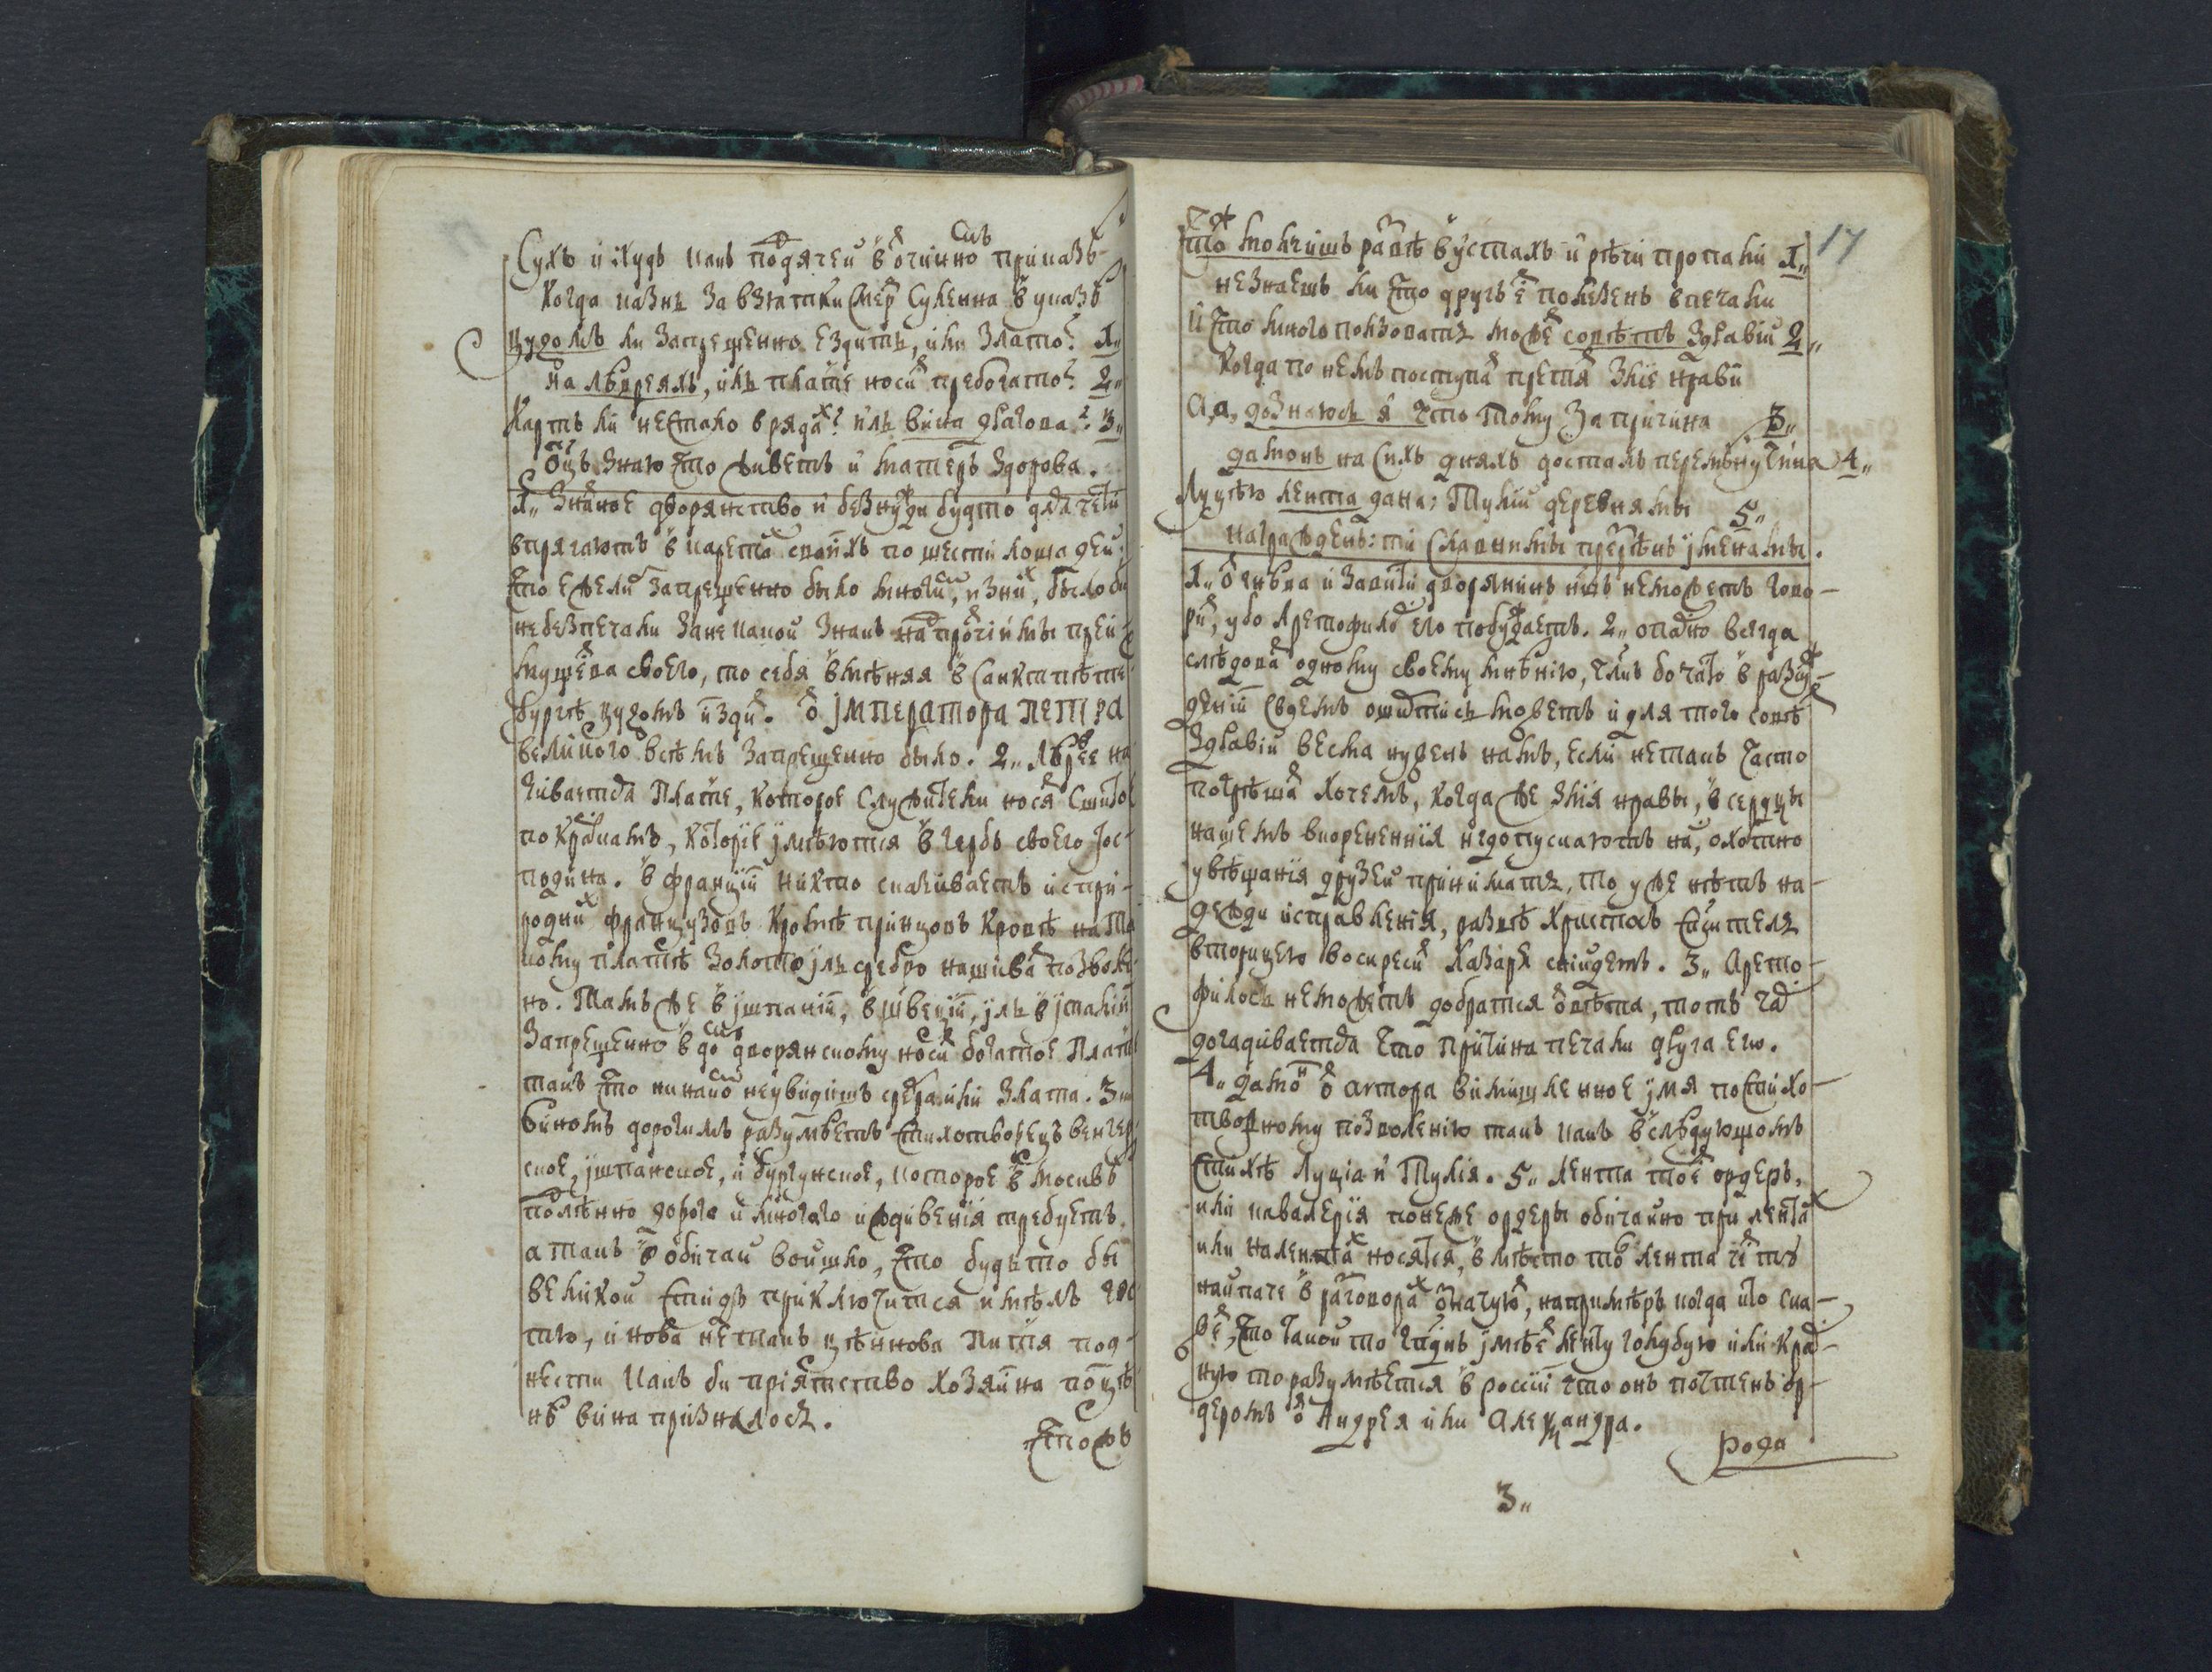 Сухъ и худъ какъ подячей в очийно приказѣ
Когда казнь за взятки смер сулена в указѣ
цугомъ ли запрещенно ездить, или злато? 1„
на лѣвреяхъ, иль платье носи пребогато? 2„
Картъ ли нестало в ряда? иль вина двагова? 3„
знаю что живетъ и матерь здорова.
1„ Знаное дворянство и без нужди будто для чети
впрягаютъ в карета своихъ по шести лошадей;
что ежели запрещенно было многи, изни, было би
небезпечали зане какой знакъ на прочіими преи-
мущева своего, то себя вмѣняя в Санктпѣте
бургѣ цугомъ изди. о імператора петра
великого всѣмъ запрещенно было. 2„ лѣврее на
чивается платье, которое служители нося сшито
по краскамъ, которіе имѣются в гербѣ своего гос-
подина. в франціи нихто скаживаетъ ис при-
родни французовъ кромѣ принцовъ кровѣ на та
кому платьѣ золото иль сребро нашива позволе
но. Тамъ же в ішпаніи, в швеціи, иль в італіи
запрещенно в до дворянскому носи богатое плат
такъ что никако неувидишъ сребра или злата. 3„
виномъ дорогимъ разумѣетъ стихотворецъ венгер
ское, ішпанское, и бургунское, которое в москвѣ
полѣнно дорога и многаго иждивенія требуетъ.
а такъ в обичай войшло, что будьто бы
великой стидъ приключится имѣлъ гос
тю, и нова не такъ цѣннова питія под-
нести какъ би пріятство хозяйна по цѣ
нѣ вина признілось.
Чтожъ
17
что молчишъ развѣ в устахъ и рѣчи пропали 1„
незнаешъ ли что другъ е полезенъ в печали
И что много ползовать може совѣтъ здравій 2„
когда по немъ поступа претя зліе нрави
А, а, дознаюсь я что тому за причина 3„
дамонъ на сихъ дняхъ досталъ перемѣну чина 4„
Луцѣю лента дана; Тулій деревнями 5„
награжденъ: ти славними презрѣнъ іменами.
1„ о гнѣва и завити дворянинъ нашъ неможетъ гово-
ри, убо Аретофило его побуждаетъ. 2„ опасно всягда
слѣдова одному своему мнѣнію, чликъ бо чато в разсу-
жденіи своемъ ошибтись можетъ и для того совѣ
Здравій весма нуженъ намъ, если не такъ часто
погрѣша хочемъ, когда же злія нравы, в сердцы
нашемъ вкорененнія недопускаютъ на, охотно
увѣщанія друзей принимать, то уже нѣтъ на-
дежди исправленія, развѣ Христосъ
вторицею воскреси Лазаря снійдетъ. 3„ Арето-
филосъ неможетъ добратся овѣта, тотъ час
догадивается что причина печали друга его.
4„ Дамо о автора вимишленное імя по стихо-
творному позволенію такъ какъ в слѣдующомъ
стихѣ Луція и Тулія. 5„ лента тое ордеръ,
или кавалерія понеже ордеры обичайно при лента
или на лента носятся, в мѣсто то лента
наипаче в разговора означую, напримѣръ когда кто ска-
же, что такой то гсдинъ имѣе ленту голубую или крас-
ную то разумѣется в россіи что онъ почтенъ ор-
деромъ о Андрея или Александра.
рода
3„